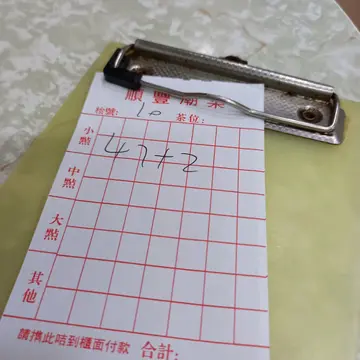 順豐潮菜
枱號: 10 茶位:
小點
47+2
中點
大點
其他
請携此咭到櫃面付款 合計: